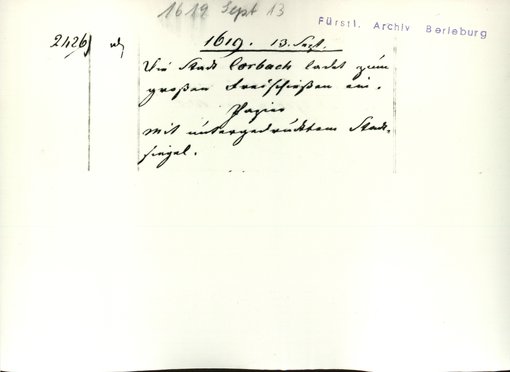 1619 Sept 13
Fürstl. Archiv Berleburg
2426)
1619. 13. Sept.
Die Stadt Corbach ladet zum
großen Freischießen ein.
Papier
mit untergedrucktem Stadt-
siegel.